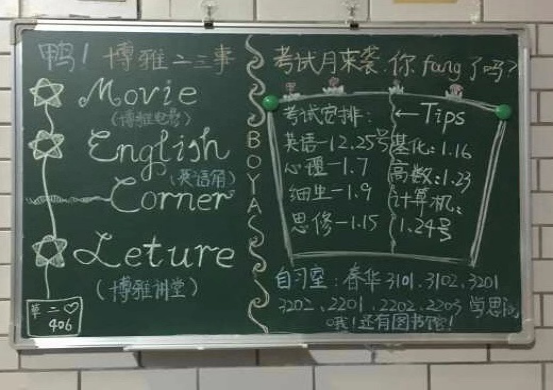 鸭！博雅二三事
Movie
(博雅电影)
English
(英语角)
Corner
Leture
(博雅讲堂)
第二
406
BOYA
考试月来袭,你fang了吗?
考试安排:
英语-12.25号
心理-1.7
细生-1.9
思修-1.15
←Tips
基化:1.16
高数:1.23
计算机:
1.24号
自习室:春华3101.3102.3201
3202.2201.2202.2203 学思
哦!还有图书馆!